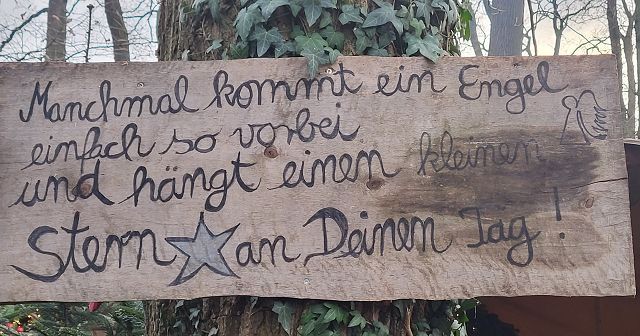 Manchmal kommt ein Engel
einfach so vorbei
und hängt einen kleinen
Stern an Deinen Tag!